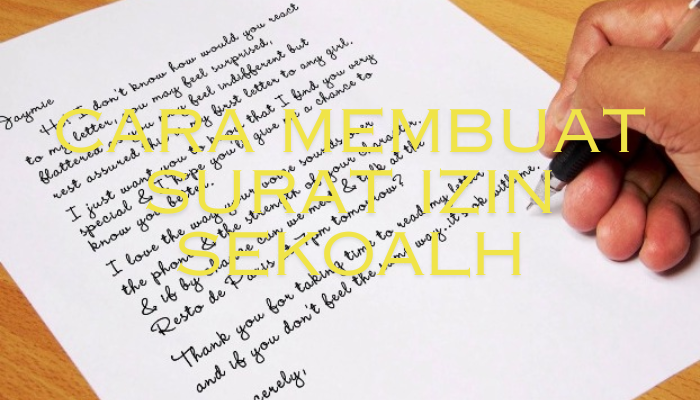 CARA MEMBUAT
SURAT IZIN
SEKOALH
Jaymie
I don't know how would you react
to my letter, you may feel surprised,
flattered or you may feel indifferent but
rest assured my first letter to any girl.
I just want you to know that I find you very
special & I hope you'd give me a chance to
know you better.
I love the way your voice sounds over
the phone & the strength of your character.
& if by chance can we meet & talk at the
Resto de Paris at 7pm tomorrow?
Thank you for taking time to read my letter
and if you don't feel the same way, it's ok with me.
cerely,